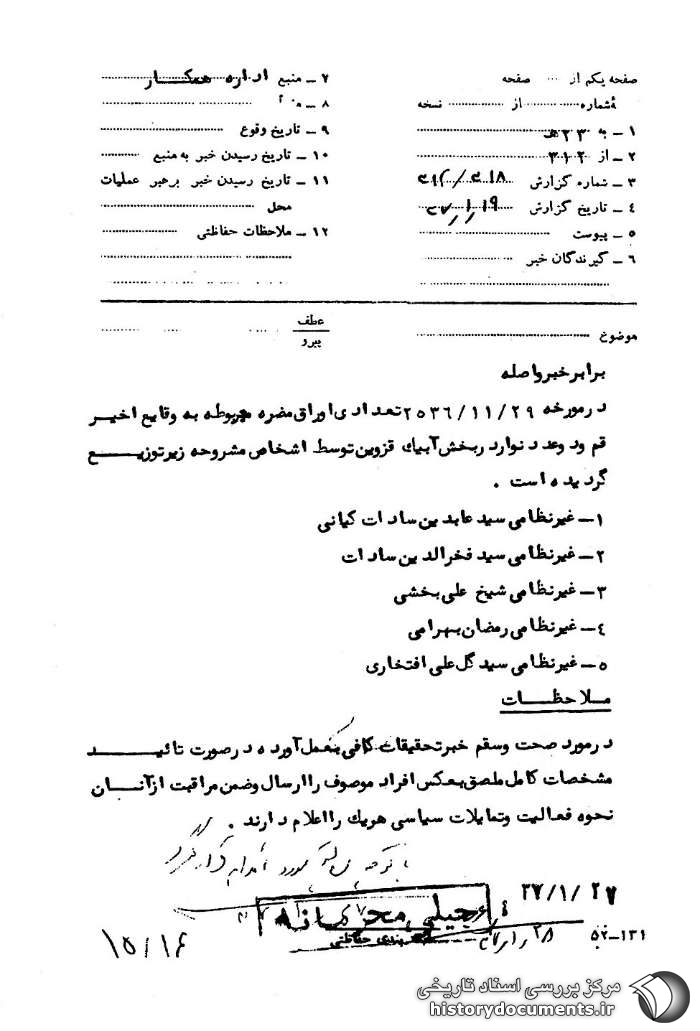 صفحه یکم از ... صفحه
شماره ........ از ........ نسخه
۱ – به ۲۳ هـ
۲ – از ۳۱۲
۳ – شماره گزارش
۴ – تاریخ گزارش
۵ – پیوست
۶ – گیرندگان خبر
۷ – منبع اداره همکار
۸ –
۹ – تاریخ وقوع
۱۰ – تاریخ رسیدن خبر به منبع
۱۱ – تاریخ رسیدن خبر برهبر عملیات
محل
۱۲ – ملاحظات حفاظتی
موضوع
عطف
پیرو
برابر خبر واصله
در مورخه ۲۵۳۶/۱۱/۲۹ تعدادی اوراق مضره مربوطه به وقایع اخیر
قم و دو عدد نوار در بخش آبیک قزوین توسط اشخاص مشروحه زیر توزیع
گردیده است .
۱– غیرنظامی سید عابدین سادات کیائی
۲– غیرنظامی سید فخرالدین سادات
۳– غیرنظامی شیخ علی بخشی
۴– غیرنظامی رمضان بهرامی
۵– غیرنظامی سید گل علی افتخاری
ملاحظات
در مورد صحت وسقم خبر تحقیقات کافی بعمل آورده در صورت تائید
مشخصات کامل ملصق بعکس افراد موصوف را ارسال وضمن مراقبت از آنان
نحوه فعالیت وتمایلات سیاسی هریک را اعلام دارند .
با توجه مورد اقدام قرار گیرد
۳۷/۱/۲۷
خیلی محرمانه
طبقه بندی حفاظتی
۲۸
۱۵/۱۶
۵۲–۱۳۱
مرکز بررسی اسناد تاریخی
historydocuments.ir